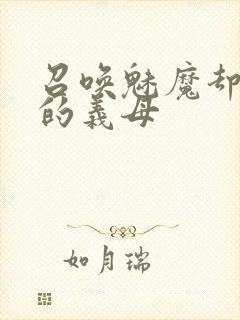 召唤魅魔却
的義母
如月瑞